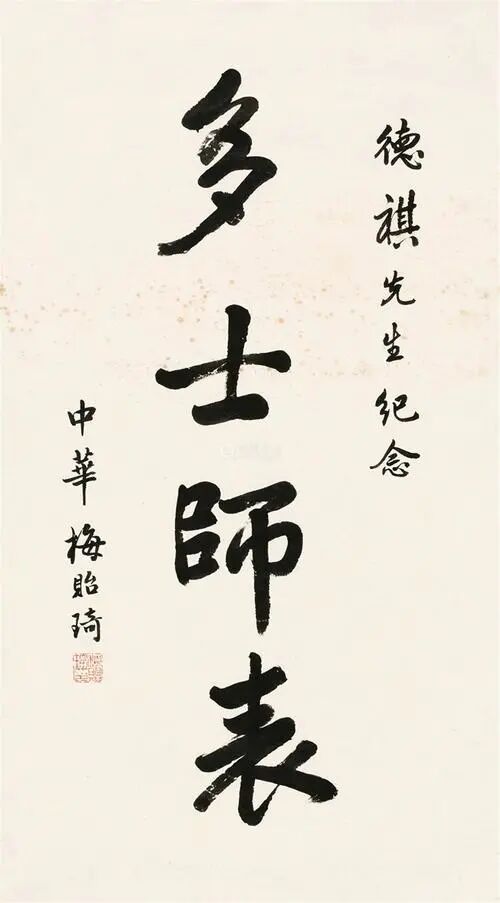 德祺先生纪念
多士師表
中華梅貽琦